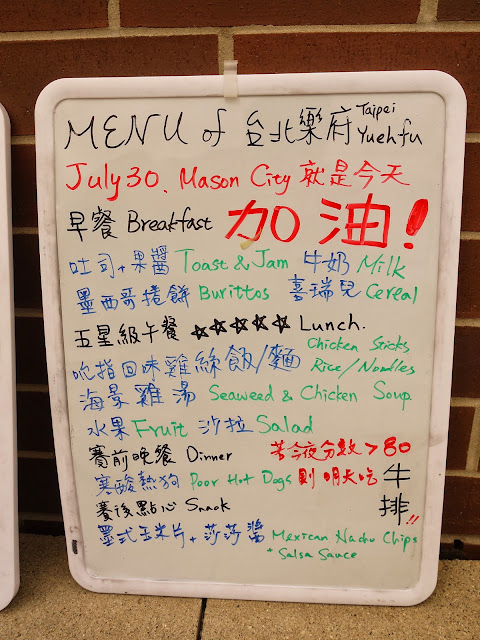 MENU of 台北樂府 Taipei Yuehfu
July 30、Mason City 就是今天
早餐 Breakfast 加油！
吐司+果醬 Toast & Jam 牛奶 Milk
墨西哥捲餅 Burittos 喜瑞兒 Cereal
五星級午餐 ☆☆☆☆☆ Lunch.
吮指回味雞絲飯/麵 Chicken Sticks Rice/Noodles
海景雞湯 Seaweed & Chicken Soup
水果 Fruit 沙拉 Salad
賽前晚餐 Dinner 若今夜分數>80
寒酸熱狗 Poor Hot Dogs 則明天吃牛排!!
賽後點心 Snack
墨式玉米片+莎莎醬 Mexican Nacho Chips + Salsa Sauce